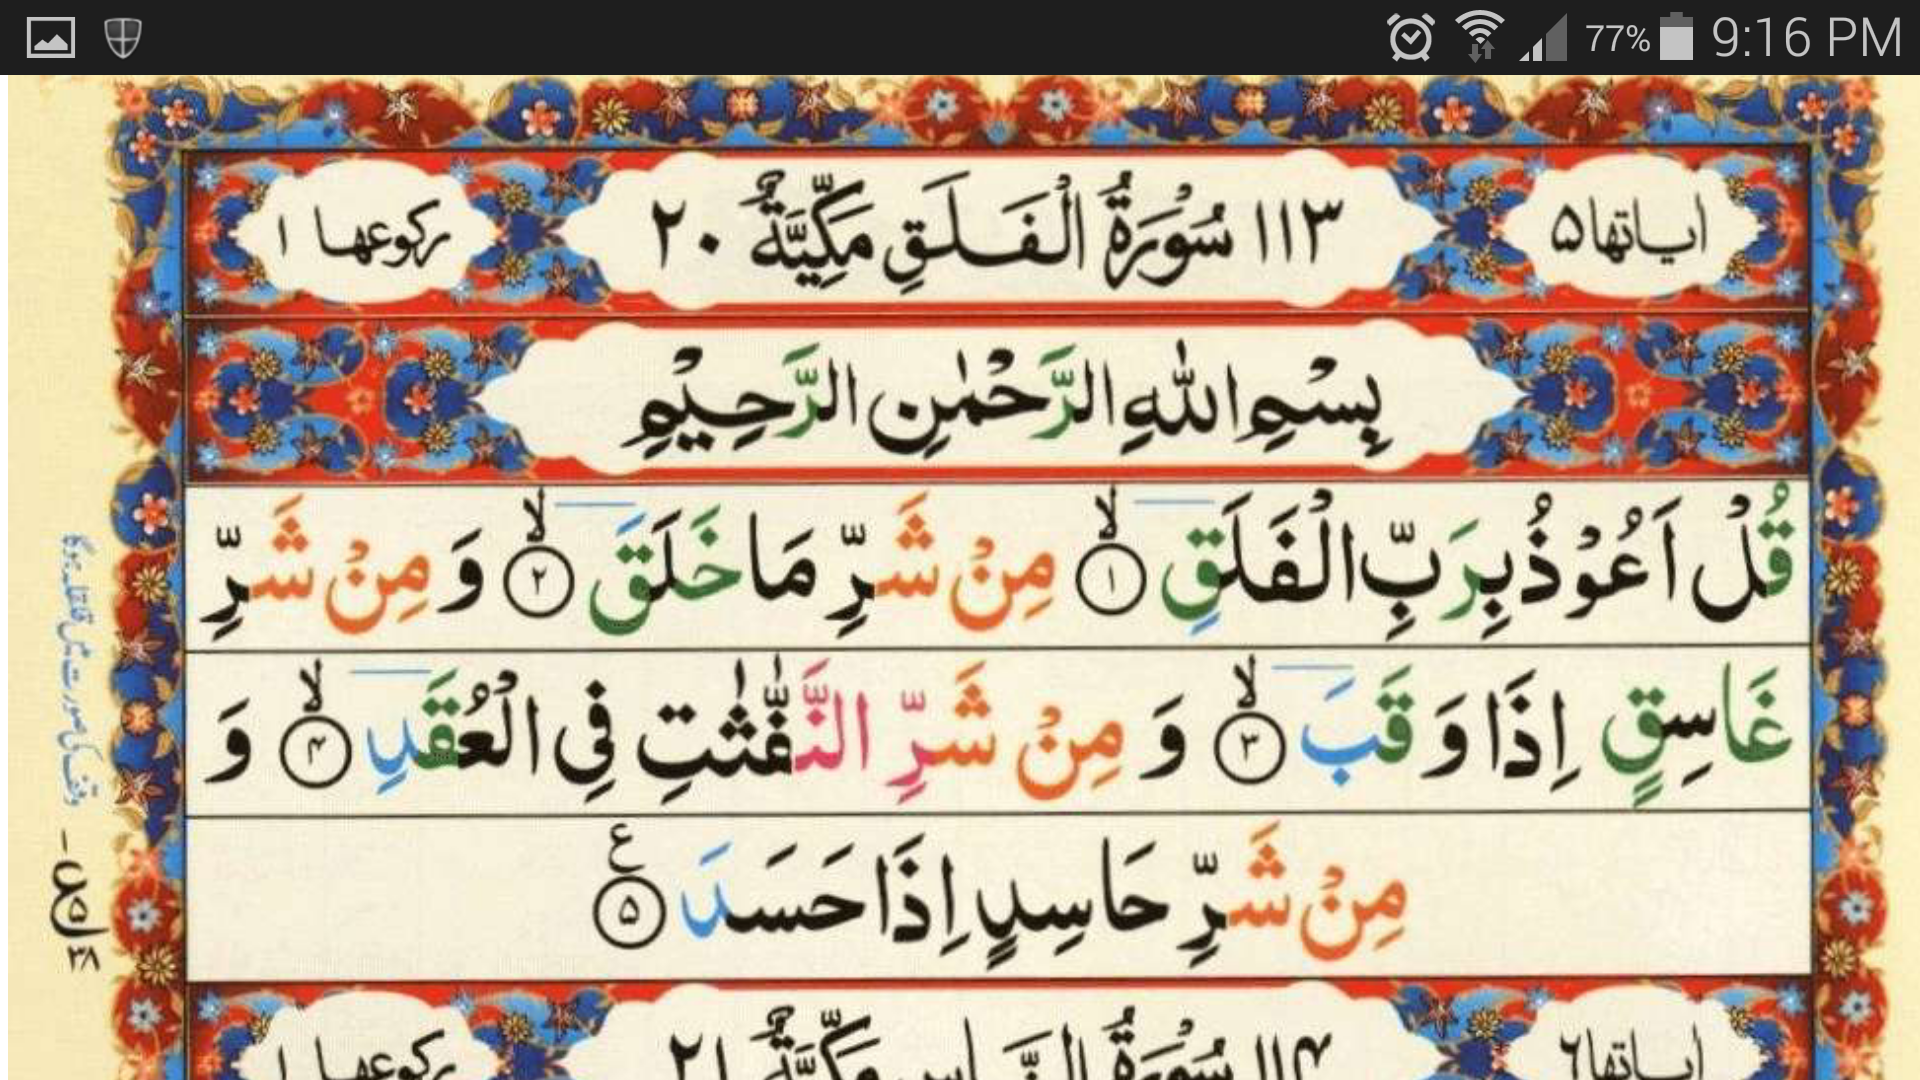 77% 9:16 PM
اٰیاتها ۵ ۱۱۳ سُوْرَةُ الْفَلَقِ مَكِّيَّةٌ ۲۰ ركوعها ۱
بِسْمِ اللّٰهِ الرَّحْمٰنِ الرَّحِيْمِ
قُلْ اَعُوْذُ بِرَبِّ الْفَلَقِ ۙ﴿۱﴾ مِنْ شَرِّ مَا خَلَقَ ۙ﴿۲﴾ وَ مِنْ شَرِّ
غَاسِقٍ اِذَا وَقَبَ ۙ﴿۳﴾ وَ مِنْ شَرِّ النَّفّٰثٰتِ فِی الْعُقَدِ ۙ﴿۴﴾ وَ
مِنْ شَرِّ حَاسِدٍ اِذَا حَسَدَ ﴿۵﴾ ع
اٰیاتها ۶ ۱۱۴ سُوْرَةُ النَّاسِ مَكِّيَّةٌ ۲۱ ركوعها ۱
ع ۵ ۳۸